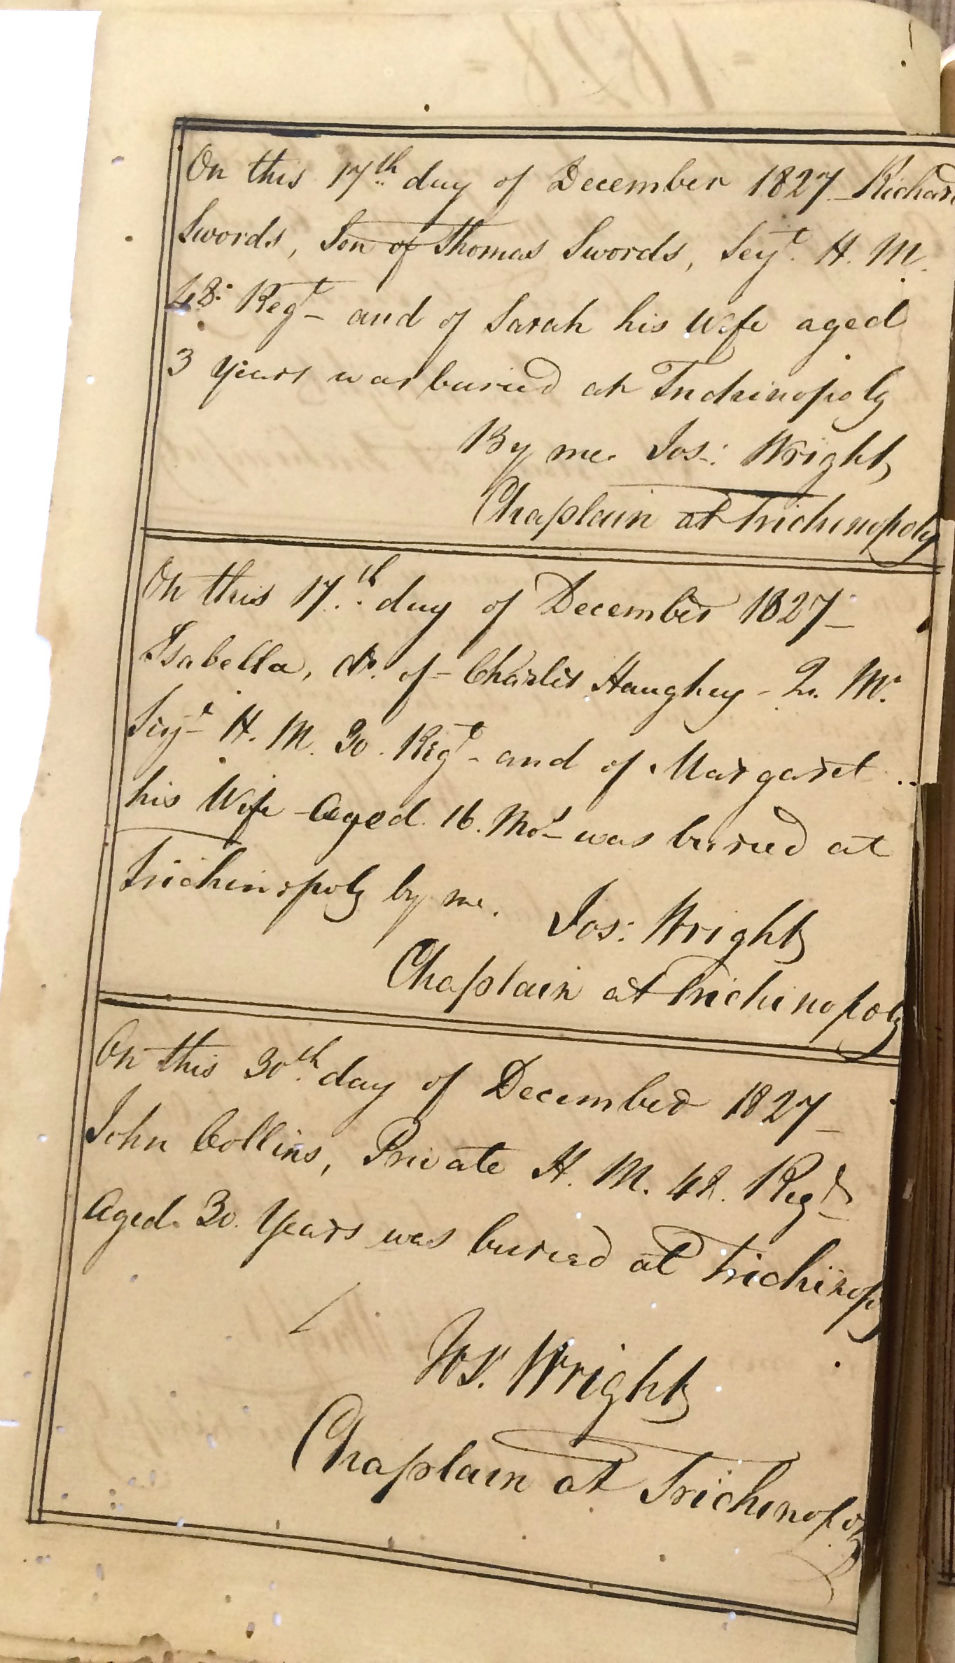 On this 17th day of December 1827 Richard
Swords, Son of Thomas Swords, Serjt. H. M.
48. Regt - and of Sarah his Wife aged
3 Years was buried at Trichinopoly
By me. Jos: Wright
Chaplain at Trichinopoly
On this 17th day of December 1827 -
Isabella, dr. of - Charles Haughey - Qr. Mr.
Serjt H. M. 30. Regt - and of Margaret ..
his Wife - Aged 16. Mos - was buried at
Trichinopoly by me. Jos: Wright
Chaplain at Trichinopoly
On this 30th day of December 1827 -
John Collins, Private H. M. 48. Regt -
Aged. 30. Years was buried at Trichinopoly
Jos. Wright
Chaplain at Trichinopoly